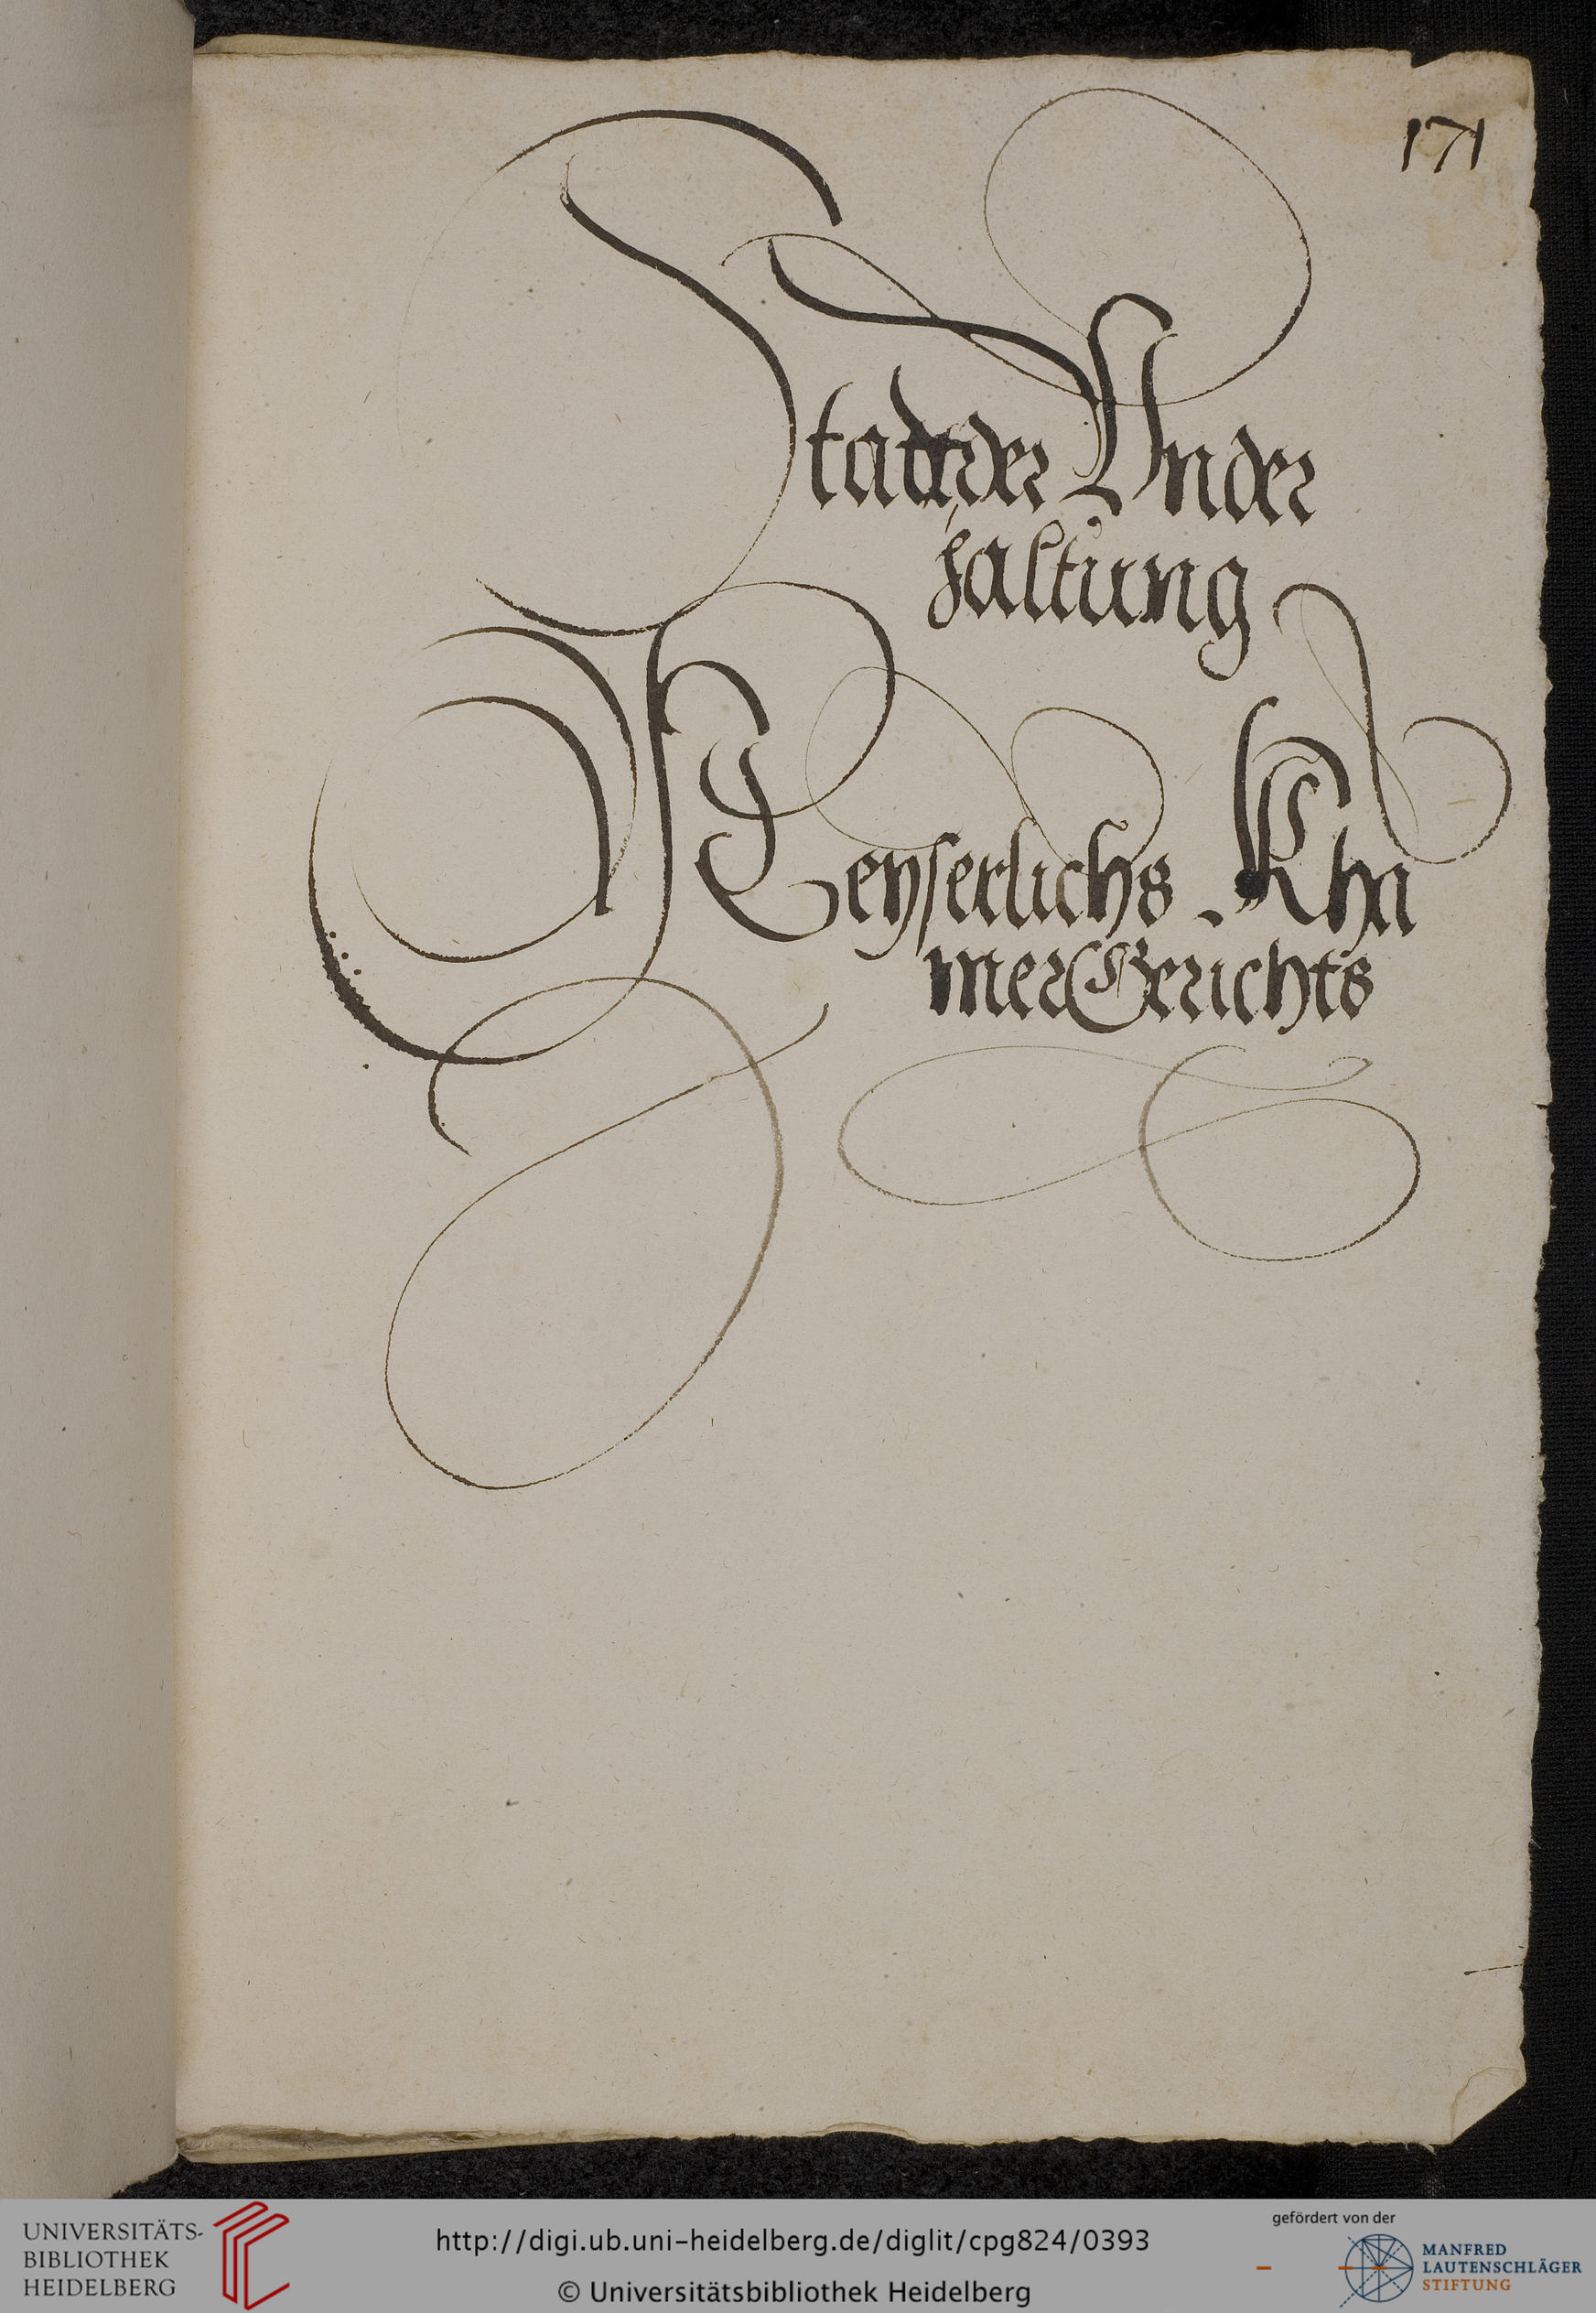 171
Stadt der Vnder
haltung
Keyserlichs Kha
mer Gerichts
UNIVERSITÄTS-
BIBLIOTHEK
HEIDELBERG
http://digi.ub.uni-heidelberg.de/diglit/cpg824/0393
© Universitätsbibliothek Heidelberg
gefördert von der
MANFRED
LAUTENSCHLÄGER
STIFTUNG